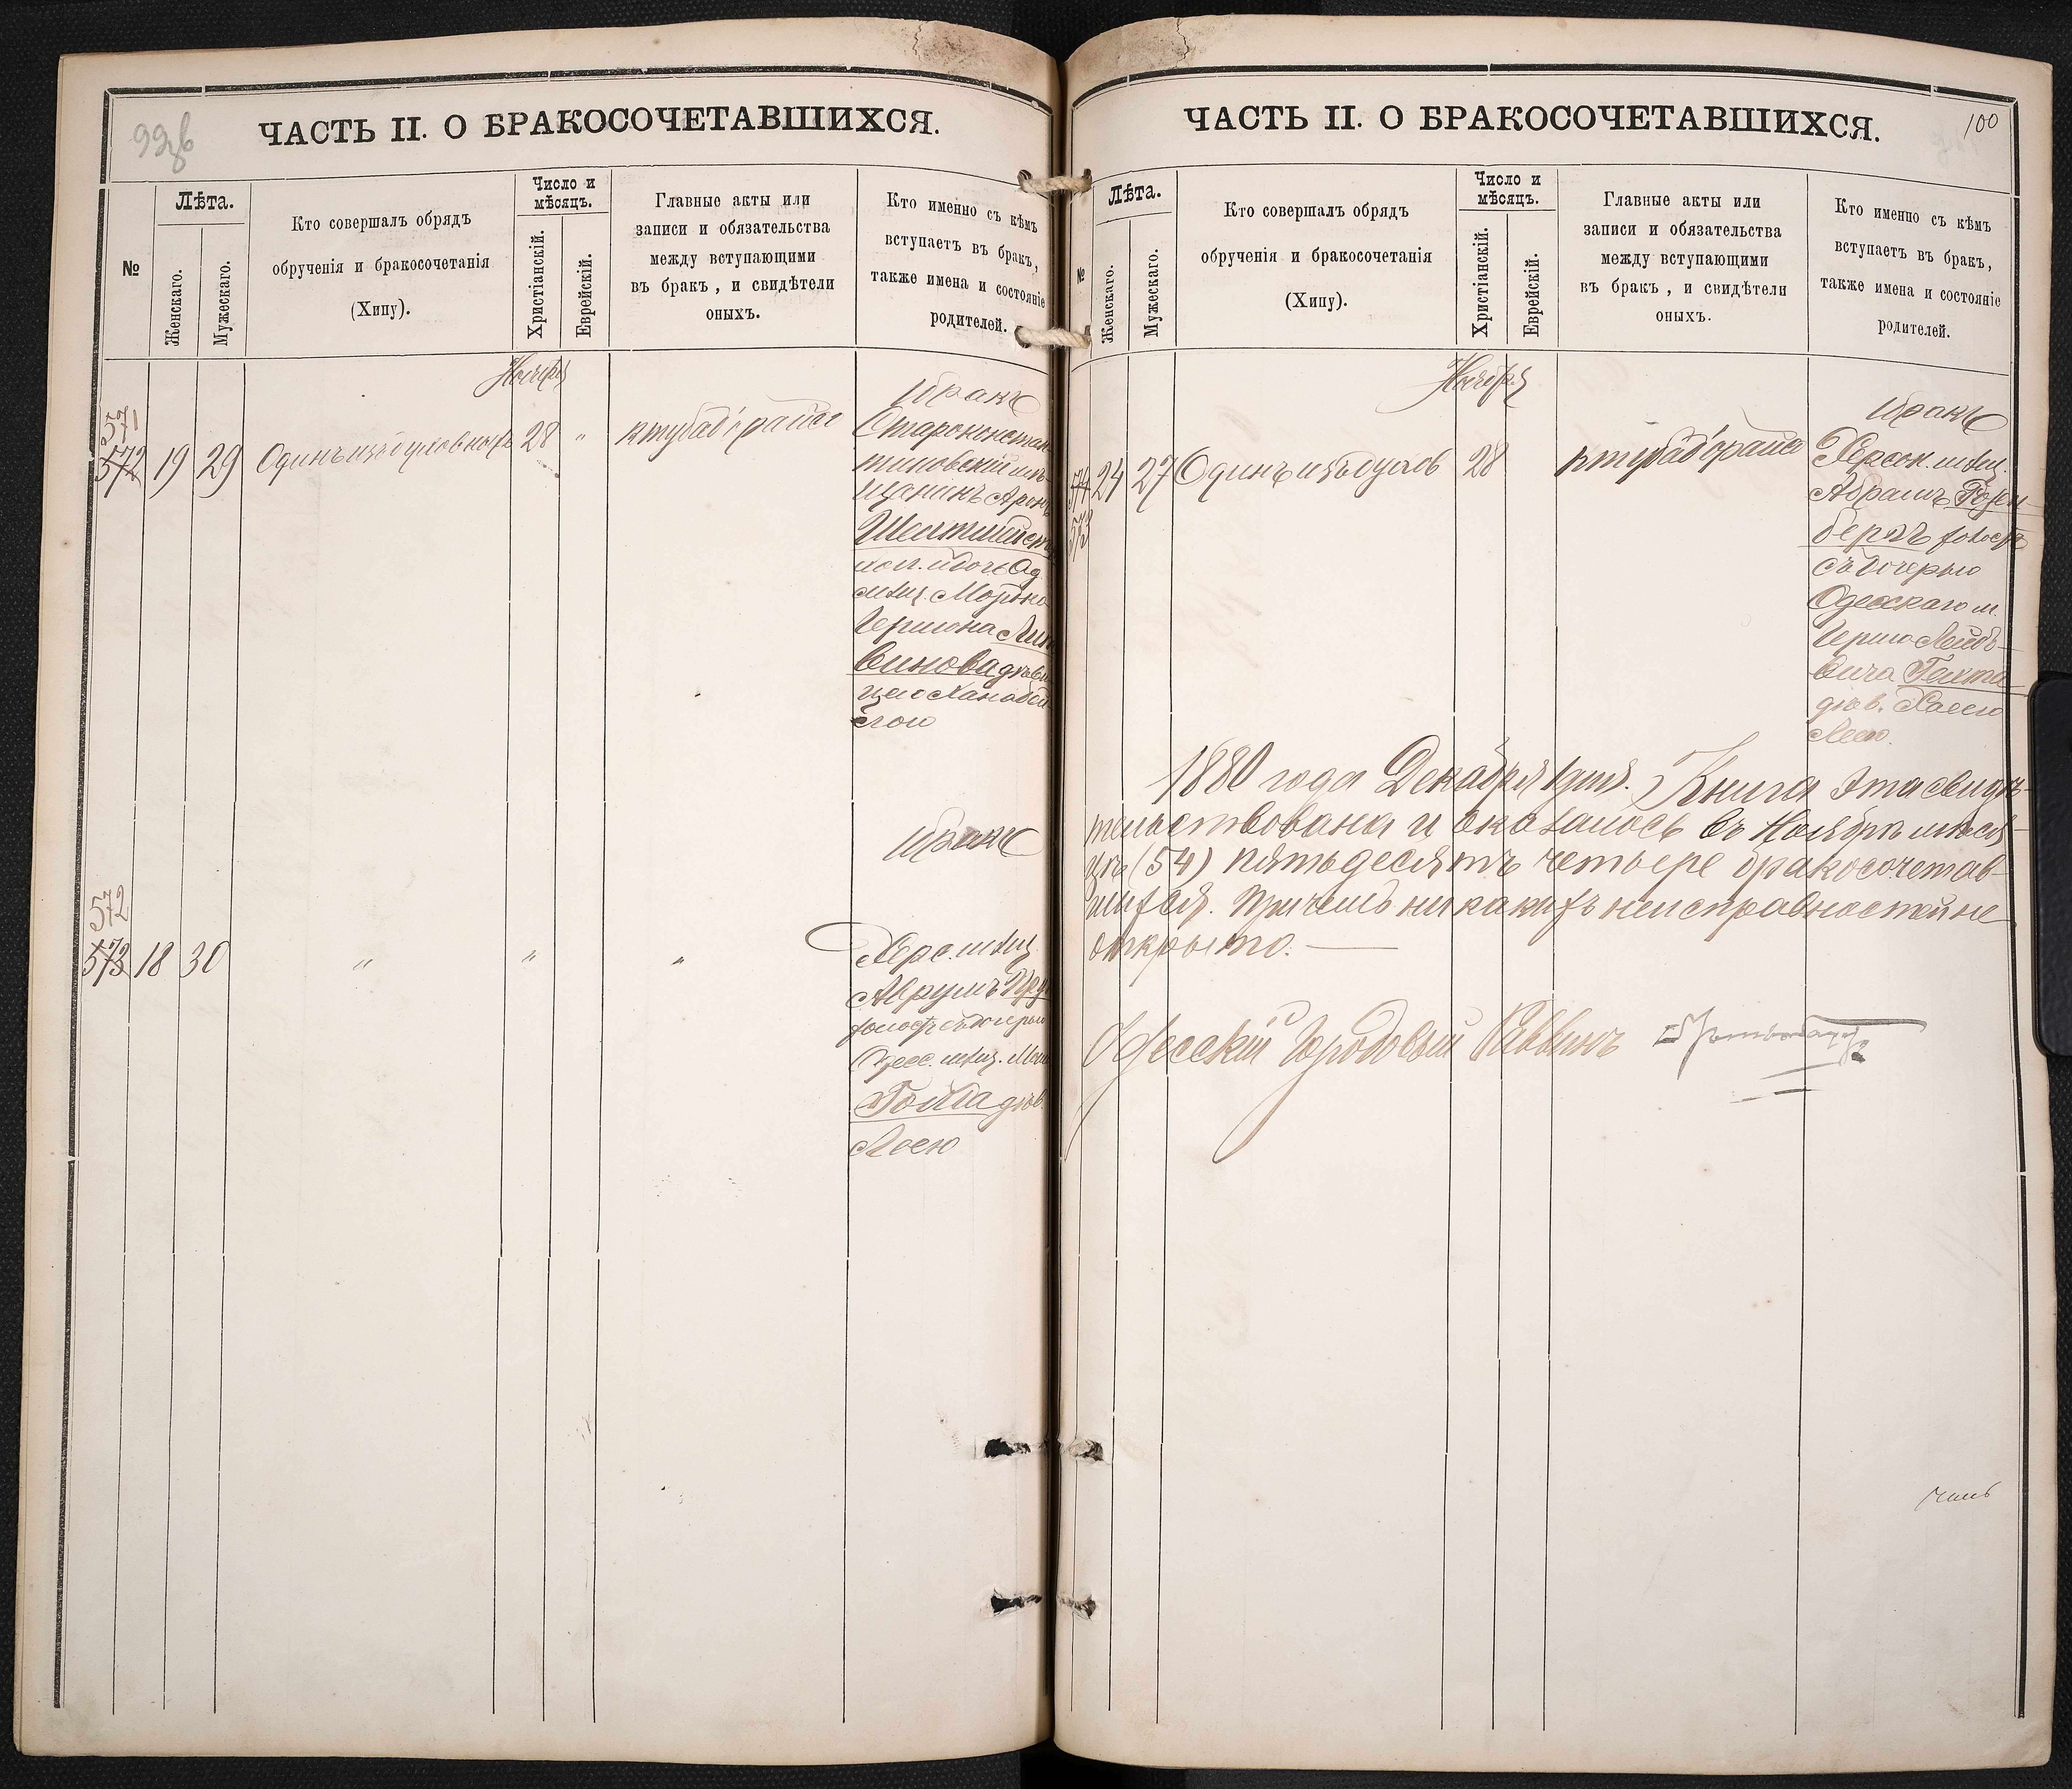 ЧАСТЬ II. О БРАКОСОЧЕТАВШИХСЯ.
№
Лѣта.
Женскаго.
Мужескаго.
Кто совершалъ обрядъ
обрученія и бракосочетанія
(Хипу).
Число и
мѣсяцъ.
Христіанскій.
Еврейскій.
Главные акты или
записи и обязательства
между вступающими
въ бракъ, и свидѣтели
оныхъ.
Кто именно съ кѣмъ
вступаетъ въ бракъ,
также имена и состояніе
родителей.
Ноября
571
572 19 29
28 "
бракъ
Староконстан
тиновскій мѣ
щанинъ Аронъ
Одес
мѣщ.
Гершона Лит
винова дѣви
цею
572
573 18 30 " " "
бракъ
Херс. мѣщ.
Аврумъ
холостъ съ дочерью
Одес. мѣщ.
Гойхба дѣв.
ЧАСТЬ II. О БРАКОСОЧЕТАВШИХСЯ.
100
№
Лѣта.
Женскаго.
Мужескаго.
Кто совершалъ обрядъ
обрученія и бракосочетанія
(Хипу).
Число и
мѣсяцъ.
Христіанскій.
Еврейскій.
Главные акты или
записи и обязательства
между вступающими
въ бракъ, и свидѣтели
оныхъ.
Кто именно съ кѣмъ
вступаетъ въ бракъ,
также имена и состояніе
родителей.
Ноября
574 24 27 Одинъ изъ духов 28
573
бракъ
Херсон. мѣщ.
Абрамъ Розен
бергъ холостъ
съ дочерью
Одесскаго м.
Герша Лейбо-
вича
дѣв.
1880 года Декабря 1 дня. Книга эта свидѣ-
тельствована и оказалось въ Ноябрѣ мѣся-
цѣ (54) пятьдесятъ четыре бракосочетав-
шихся. Причемъ никакихъ неисправностей не
открыто.
Одесскій Городовый Раввинъ